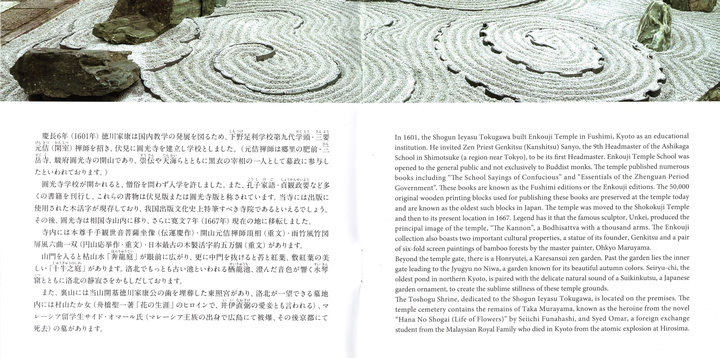 慶長6年（1601年）徳川家康は国内教学の発展を図るため、下野足利学校第九代学頭・三要
元佶（閑室）禅師を招き、伏見に圓光寺を建立し学校としました。（元佶禅師は郷里の肥前・三
岳寺、駿府圓光寺の開山であり、崇伝や天海らとともに黒衣の宰相の一人として幕政に参与し
たといわれております。）
圓光寺学校が開かれると、僧俗を問わず入学を許しました。また、孔子家語・貞観政要など多
くの書籍を刊行し、これらの書物は伏見版または圓光寺版と称されています。当寺には出版に
使用された木活字が現存しており、我国出版文化史上特筆すべき寺院であるといえるでしょう。
その後、圓光寺は相国寺山内に移り、さらに寛文7年（1667年）現在の地に移転しました。
寺内には本尊千手観世音菩薩坐像（伝運慶作）・開山元佶禅師頂相（重文）・雨竹風竹図
屏風六曲一双（円山応挙作・重文）・日本最古の木製活字約五万個（重文）があります。
山門を入ると枯山水「奔龍庭」が眼前に広がり、更に中門を抜けると苔と紅葉、散紅葉の美
しい「十牛之庭」があります。洛北でもっとも古い池といわれる栖龍池、澄んだ音色が響く水琴
窟とともに洛北の静寂さをかもしだしております。
また、裏山には当山開基徳川家康公の歯を埋葬した東照宮があり、洛北が一望できる墓地
内には村山たか女（舟橋聖一著『花の生涯』のヒロインで、井伊直弼の愛妾とも言われる）、マ
レーシア留学生サイド・オマール氏（マレーシア王族の出身で広島にて被爆、その後京都にて
死去）の墓があります。
In 1601, the Shogun Ieyasu Tokugawa built Enkouji Temple in Fushimi, Kyoto as an educational
institution. He invited Zen Priest Genkitsu (Kanshitsu) Sanyo, the 9th Headmaster of the Ashikaga
School in Shimotsuke (a region near Tokyo), to be its first Headmaster. Enkouji Temple School was
opened to the general public and not exclusively to Buddist monks. The temple published numerous
books including "The School Sayings of Confucious" and "Essentials of the Zhenguan Period
Government". These books are known as the Fushimi editions or the Enkouji editions. The 50,000
original wooden printing blocks used for publishing these books are preserved at the temple today
and are known as the oldest such blocks in Japan. The temple was moved to the Shokokuji Temple
and then to its present location in 1667. Legend has it that the famous sculptor, Unkei, produced the
principal image of the temple, "The Kannon", a Bodhisattva with a thousand arms. The Enkouji
collection also boasts two important cultural properties, a statue of its founder, Genkitsu and a pair
of six-fold screen paintings of bamboo forests by the master painter, Ohkyo Maruyama.
Beyond the temple gate, there is a Honryutei, a Karesansui zen garden. Past the garden lies the inner
gate leading to the Jyugyu no Niwa, a garden known for its beautiful autumn colors. Seiryu-chi, the
oldest pond in northern Kyoto, is paired with the delicate natural sound of a Suikinkutsu, a Japanese
garden ornament, to create the sublime stillness of these temple grounds.
The Toshogu Shrine, dedicated to the Shogun Ieyasu Tokugawa, is located on the premises. The
temple cemetery contains the remains of Taka Murayama, known as the heroine from the novel
"Hana No Shogai (Life of Flowers)" by Seiichi Funahashi, and Syed Omar, a foreign exchange
student from the Malaysian Royal Family who died in Kyoto from the atomic explosion at Hirosima.